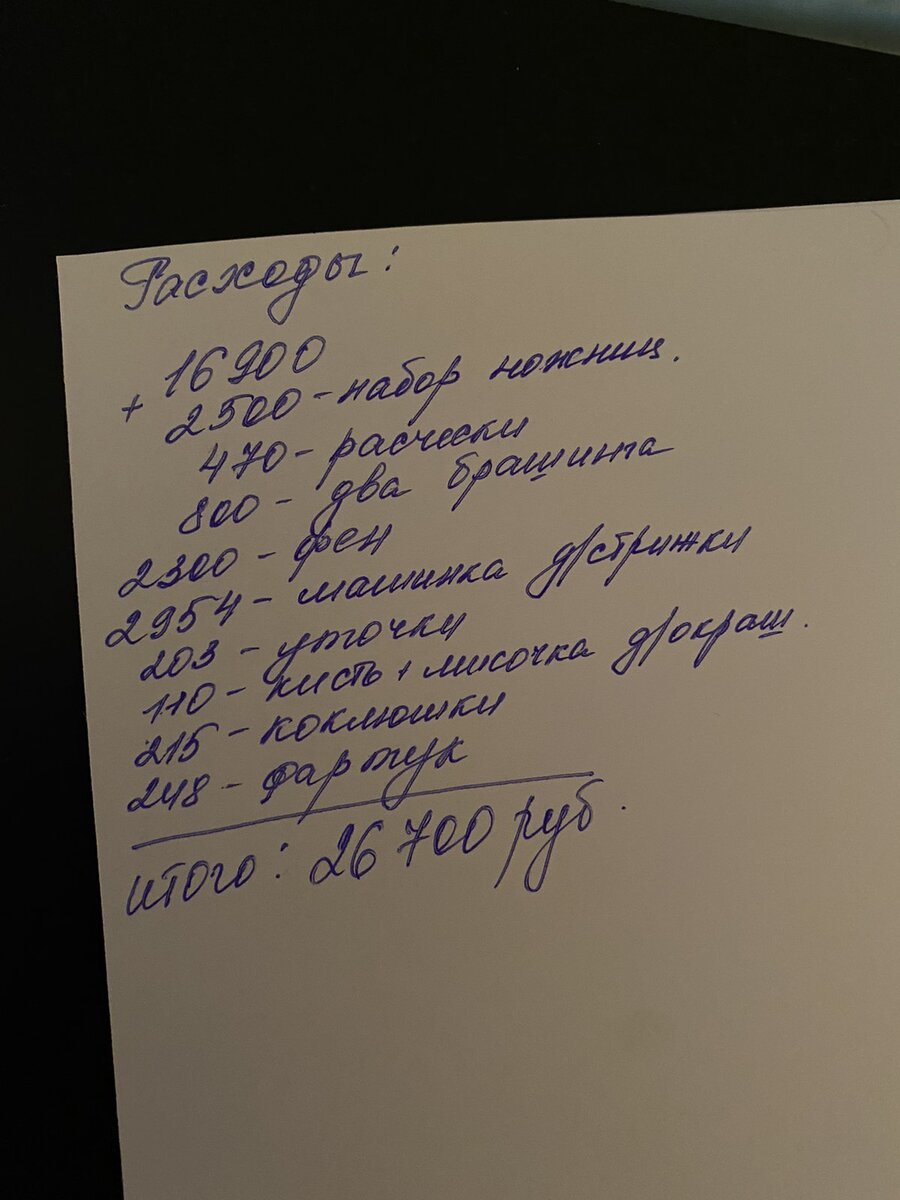 Расходы:
16900
+ 2500 - набор ножниц.
470 - расчески
800 - два брашинга
2300 - фен
2954 - машинка д/стрижки
203 - уточки
110 - кисть + мисочка д/окраш.
215 - коклюшки
248 - фартук
итого: 26 700 руб.